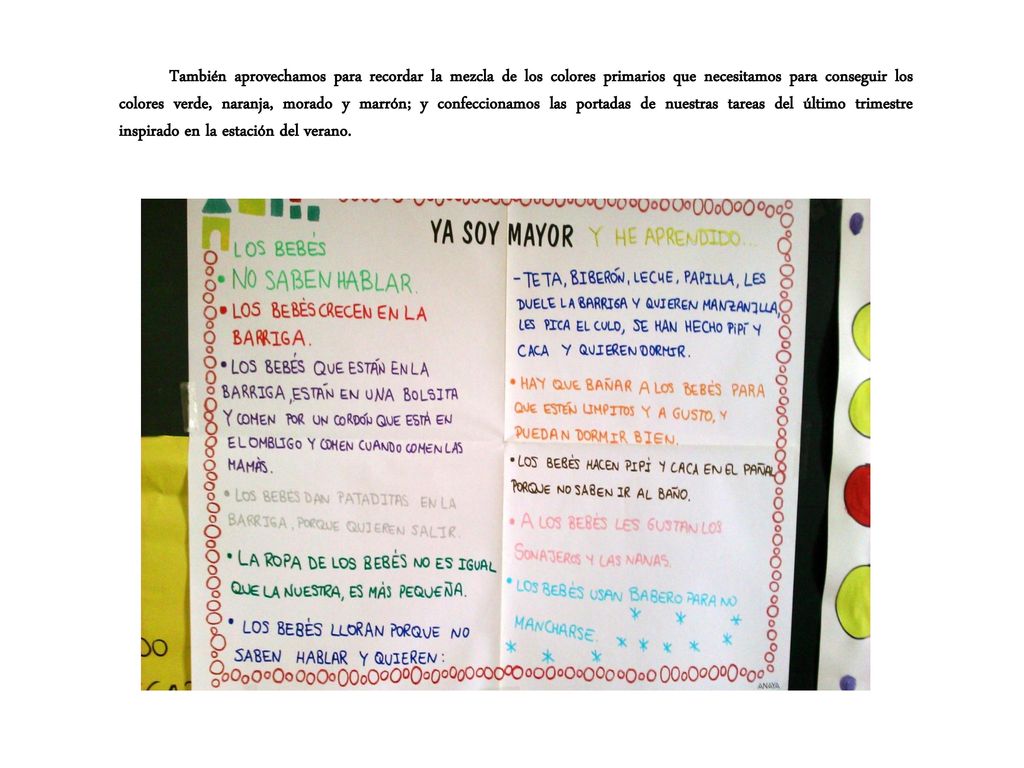 También aprovechamos para recordar la mezcla de los colores primarios que necesitamos para conseguir los
colores verde, naranja, morado y marrón; y confeccionamos las portadas de nuestras tareas del último trimestre
inspirado en la estación del verano.
YA SOY MAYOR Y HE APRENDIDO...
LOS BEBÉS
• NO SABEN HABLAR.
• LOS BEBÉS CRECEN EN LA
BARRIGA.
• LOS BEBÉS QUE ESTÁN EN LA
BARRIGA, ESTÁN EN UNA BOLSITA
Y COMEN POR UN CORDÓN QUE ESTÁ EN
EL OMBLIGO Y COMEN CUANDO COMEN LAS
MAMÁS.
• LOS BEBÉS DAN PATADITAS EN LA
BARRIGA, PORQUE QUIEREN SALIR.
• LA ROPA DE LOS BEBÉS NO ES IGUAL
QUE LA NUESTRA, ES MÁS PEQUEÑA.
• LOS BEBÉS LLORAN PORQUE NO
SABEN HABLAR Y QUIEREN:
- TETA, BIBERÓN, LECHE, PAPILLA, LES
DUELE LA BARRIGA Y QUIEREN MANZANILLA,
LES PICA EL CULO, SE HAN HECHO PIPÍ Y
CACA Y QUIEREN DORMIR.
• HAY QUE BAÑAR A LOS BEBÉS PARA
QUE ESTÉN LIMPITOS Y A GUSTO, Y
PUEDAN DORMIR BIEN.
• LOS BEBÉS HACEN PIPÍ Y CACA EN EL PAÑAL
PORQUE NO SABEN IR AL BAÑO.
• A LOS BEBÉS LES GUSTAN LOS
SONAJEROS Y LAS NANAS.
• LOS BEBÉS USAN BABERO PARA NO
MANCHARSE.
ANAYA
DO